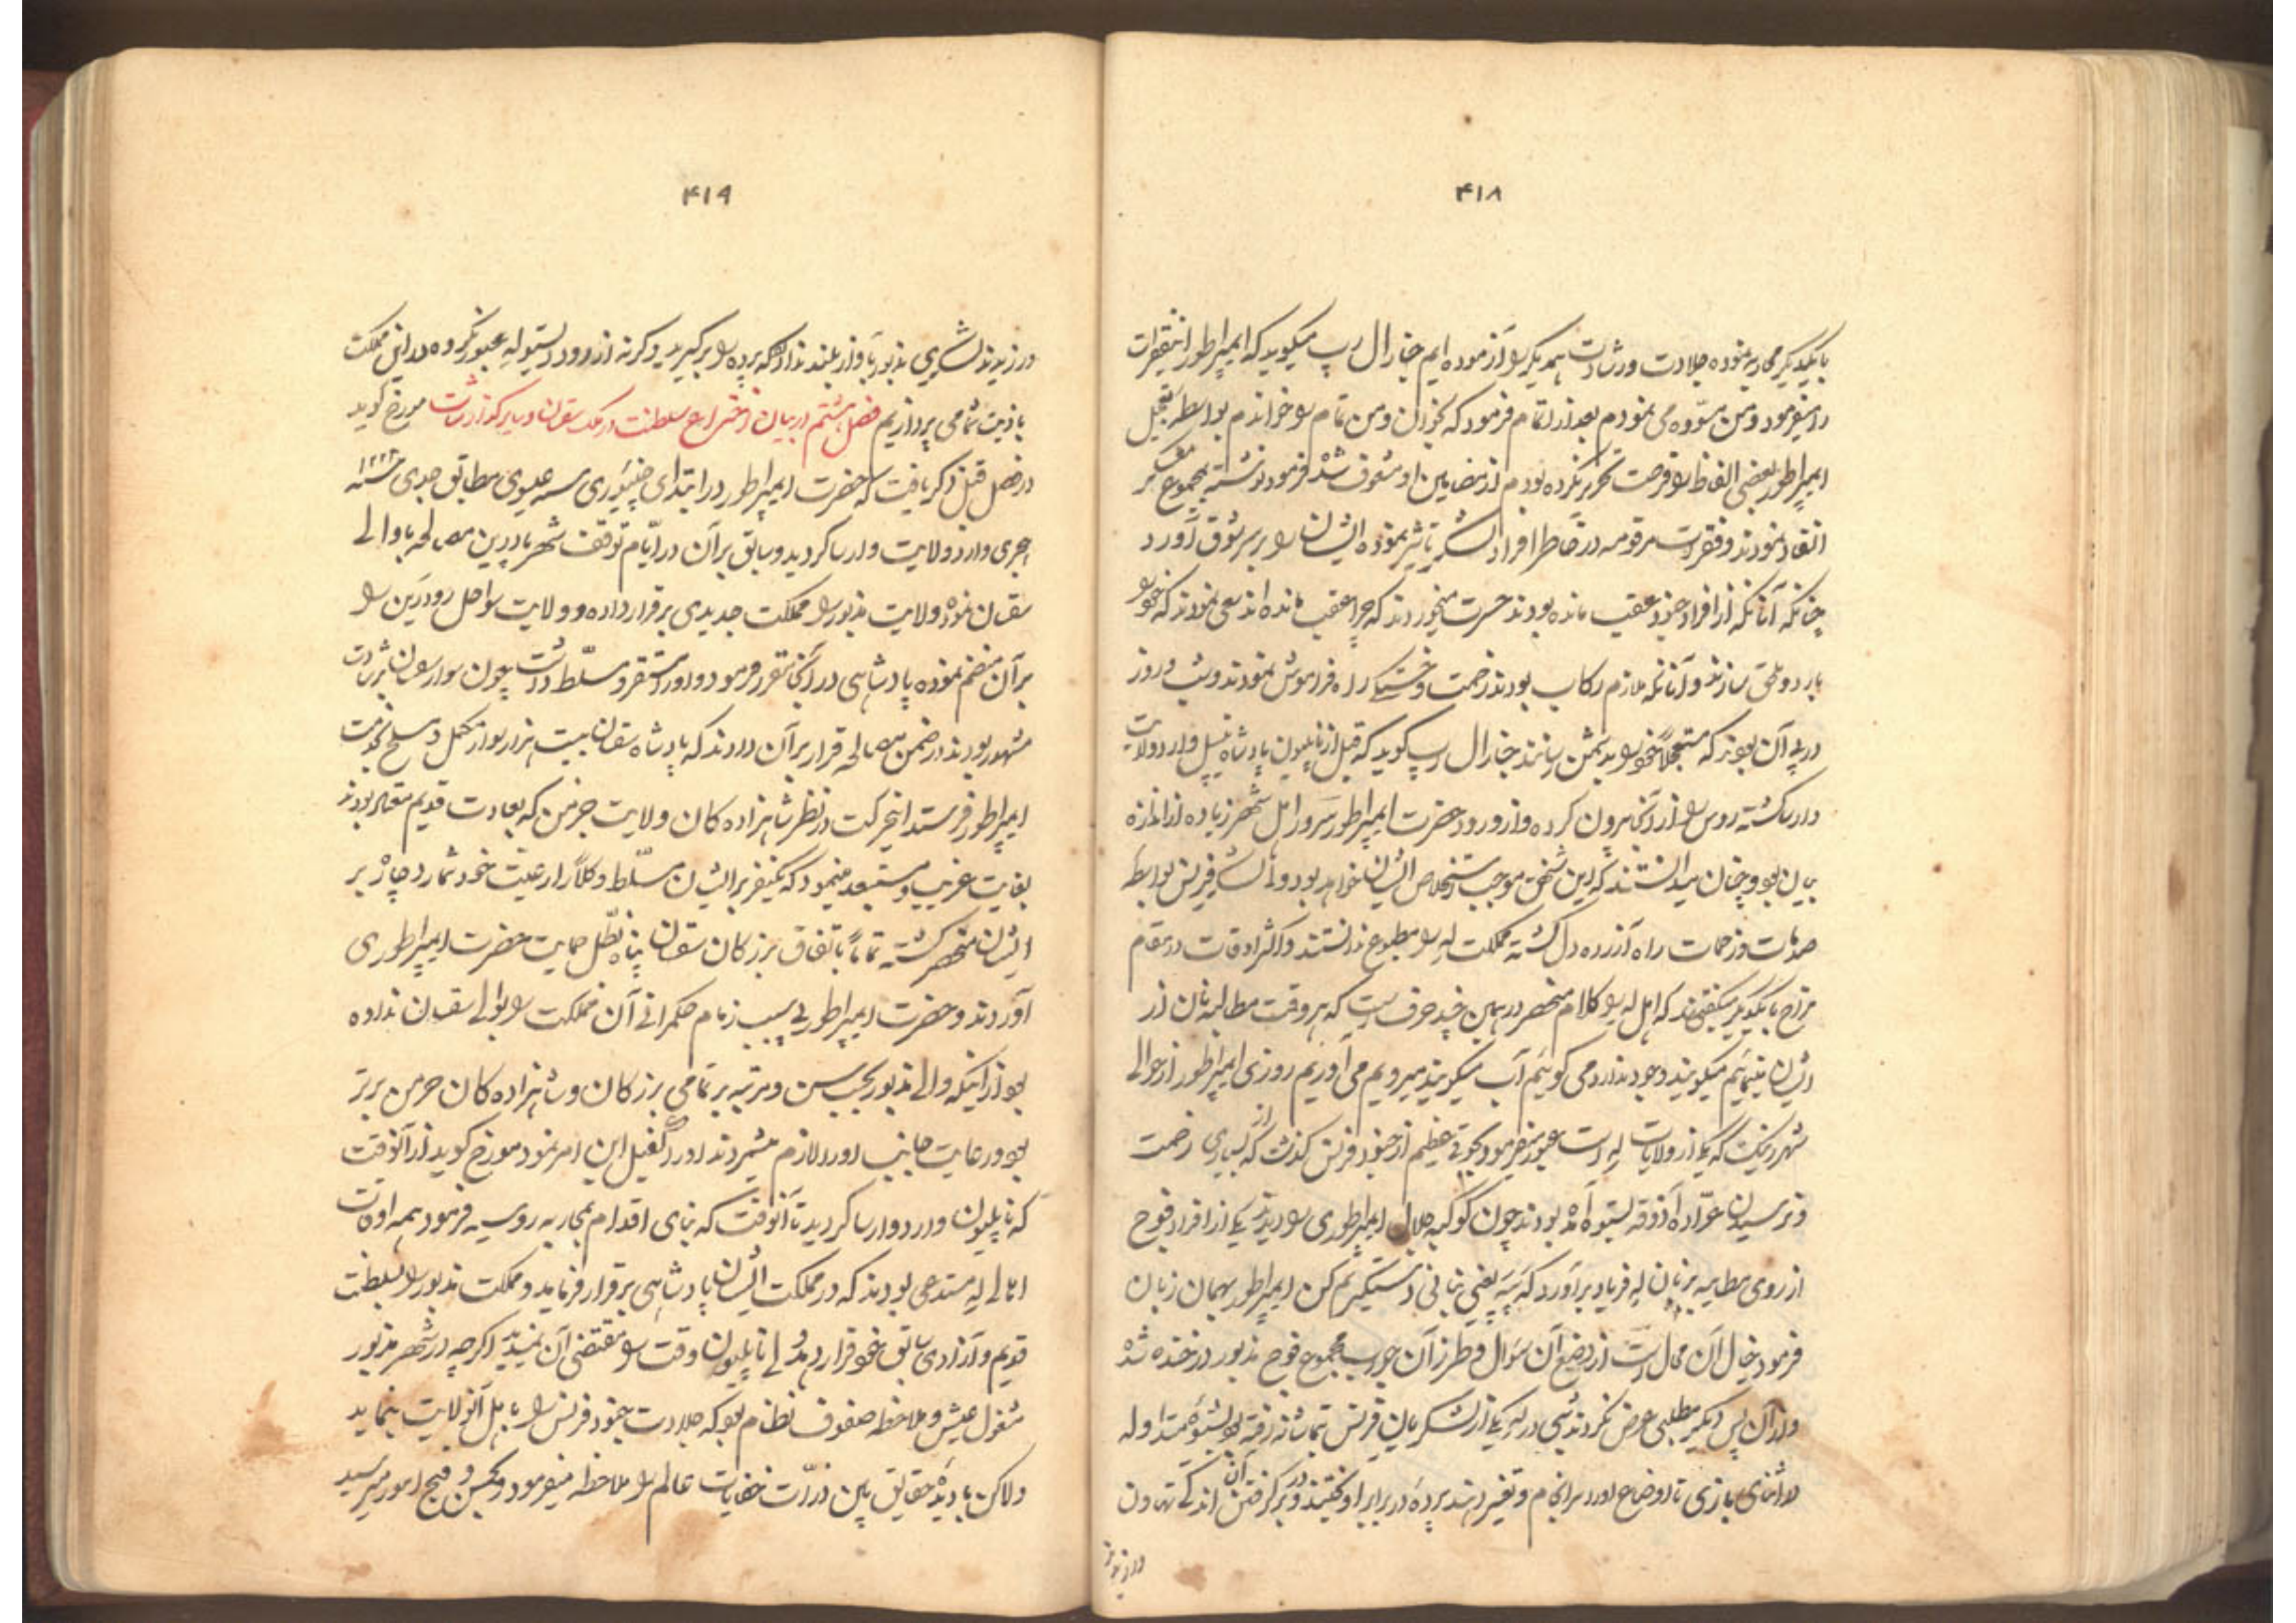 ۴۱۸
با یکدیگر محاربه نموده جلادت و رشادت همدیگر را آزموده ایم جنارال رپ میگوید که ایمپراطور این فقرات
را میفرمود و من مسوده می نمودم بعد از اتمام فرمود که بخوان و من تمام را خواندم بواسطه تعجیل
ایمپراطور بعضی الفاظ را فرصت تحریر نکرده بودم از مضامین او مشعوف شده فرمود نوشته بمجموع معسکر
انفاد نمودند و فقرات مرقومه در خاطر افراد لشکر تاثیر نموده ایشان را بر سر شوق آورد
چنانکه آنانکه از افراد جنود عقب مانده بودند حسرت میخوردند که چرا عقب مانده اند سعی نمودند که خود را
باردو ملحق سازند و آنانکه ملازم رکاب بودند زحمت و خستگی راه فراموش نمودند و شب و روز
در پی آن بودند که مستعجلاً خود را بدشمن رسانند جنارال رپ گوید که قبل از ناپلیون پادشاه نیپل وارد ولایت
وارسا گشته روس را از آنجا بیرون کرده و از ورود حضرت ایمپراطور سرور اهل شهر زیاده از اندازه
بیان بود و چنان میدانستند که این شخص موجب استخلاص ایشان خواهد بود ولی لشکر فرنس بواسطه
صدمات و زحمات راه آزرده دل گشته مملکت له را مطبوع ندانستند و اکثر اوقات در مقام
مزاح با یکدیگر میگفتند که اهل له را کلام منحصر در همین چند حرفست که هر وقت مطالبه نان از
ایشان مینمائیم میگویند وجود ندارد می گوئیم آب میگویند میرویم می آوریم روزی ایمپراطور از حوالی
شهر که یکی از ولایات له است عبور میفرمود بجوقی عظیم از جنود فرنس گذشت که از بسیاری زحمت
و نرسیدن عراده آذوقه بستوه آمده بودند چون کوکبه جلال ایمپراطوری را دیدند یکی از افراد فوج
از روی مطایبه بزبان له فریاد برآورد که یعنی نانی دستگیرم کن ایمپراطور بهمان زبان
فرمود خیال آن محال است از وضع آن سوال و طرز آن جواب مجموع فوج مذبور در خنده شده
و از آن پس دیگر مطلبی عرض نکردند شبی در له یکی از لشکریان فرنس بتماشاخانه رفته بود بشیوه متداوله
در اثنای بازی تا اوضاع او را سرانجام و تغییر دهند پرده در برابر او کشیدند و در برگرفتن آن اندکی تهاون
ورزیدند
۴۱۹
ورزیدند لشکری مذبور بآواز بلند ندا داد که پرده را برگیرید وگرنه از رود ویستوله عبور نکرده در این مملکت
باذیت شما می پردازیم فصل هشتم در بیان اختراع سلطنت در ملک سقسان و سایر گذارشات مورخ گوید
در فصل قبل ذکر یافت که حضرت ایمپراطور در ابتدای سنه عیسوی مطابق جدی سنه ۱۲۲۲
هجری وارد ولایت وارسا گردید و سابق بر آن در ایام توقف شهر مصالحه با والی
سقسان نموده ولایت مذبور را مملکت جدیدی برقرار داده و ولایت سواحل رود رین را
بر آن منضم نموده پادشاهی در آنجا مقرر فرمود و او را مستقر و مسلط داشت چون سواران سقسان برشادت
مشهور بودند در ضمن مصالحه قرار بر آن دادند که پادشاه سقسان بیست هزار سوار مکمل و مسلح بخدمت
ایمپراطور فرستد این حرکت در نظر شاهزاده کان ولایت جرمن که بعادت قدیم معتاد بودند
بغایت غریب و مستبعد مینمود که یکنفر بر ایشان مسلط و کلاً را رعیت خود شمارد چاره بر
ایشان منحصر گشته تماماً باتفاق بزرکان سقسان پناه بظل حمایت حضرت ایمپراطوری
آوردند و حضرت ایمپراطور بی سبب زمام حکمرانی آن مملکت را بوالی سقسان نداده
بود از اینکه والی مذبور بحسب سن و مرتبه بر تمامی بزرکان و شاهزاده کان جرمن برتر
بود و رعایت جانب او را لازم میشمردند او را کفیل این امر نمود مورخ گوید از آنوقت
که ناپلیون وارد وارسا گردید تا آنوقت که بنای اقدام بمحاربه روسیه فرمود همه اوقات
اهالی له مستدعی بودند که در مملکت ایشان پادشاهی برقرار فرماید و مملکت مذبور را بسلطنت
قدیم و آزادی سابق خود قرار دهد ولی ناپلیون وقت را مقتضی آن نمیدید اگرچه در شهر مذبور
مشغول عیش و ملاحظه صفوف نظام بود که جلادت جنود فرنس را باهل آنولایت بنماید
ولاکن با دیده حقایق بین ذرات خفایات عالم را ملاحظه میفرمود و بحسن و قبح امور میرسید